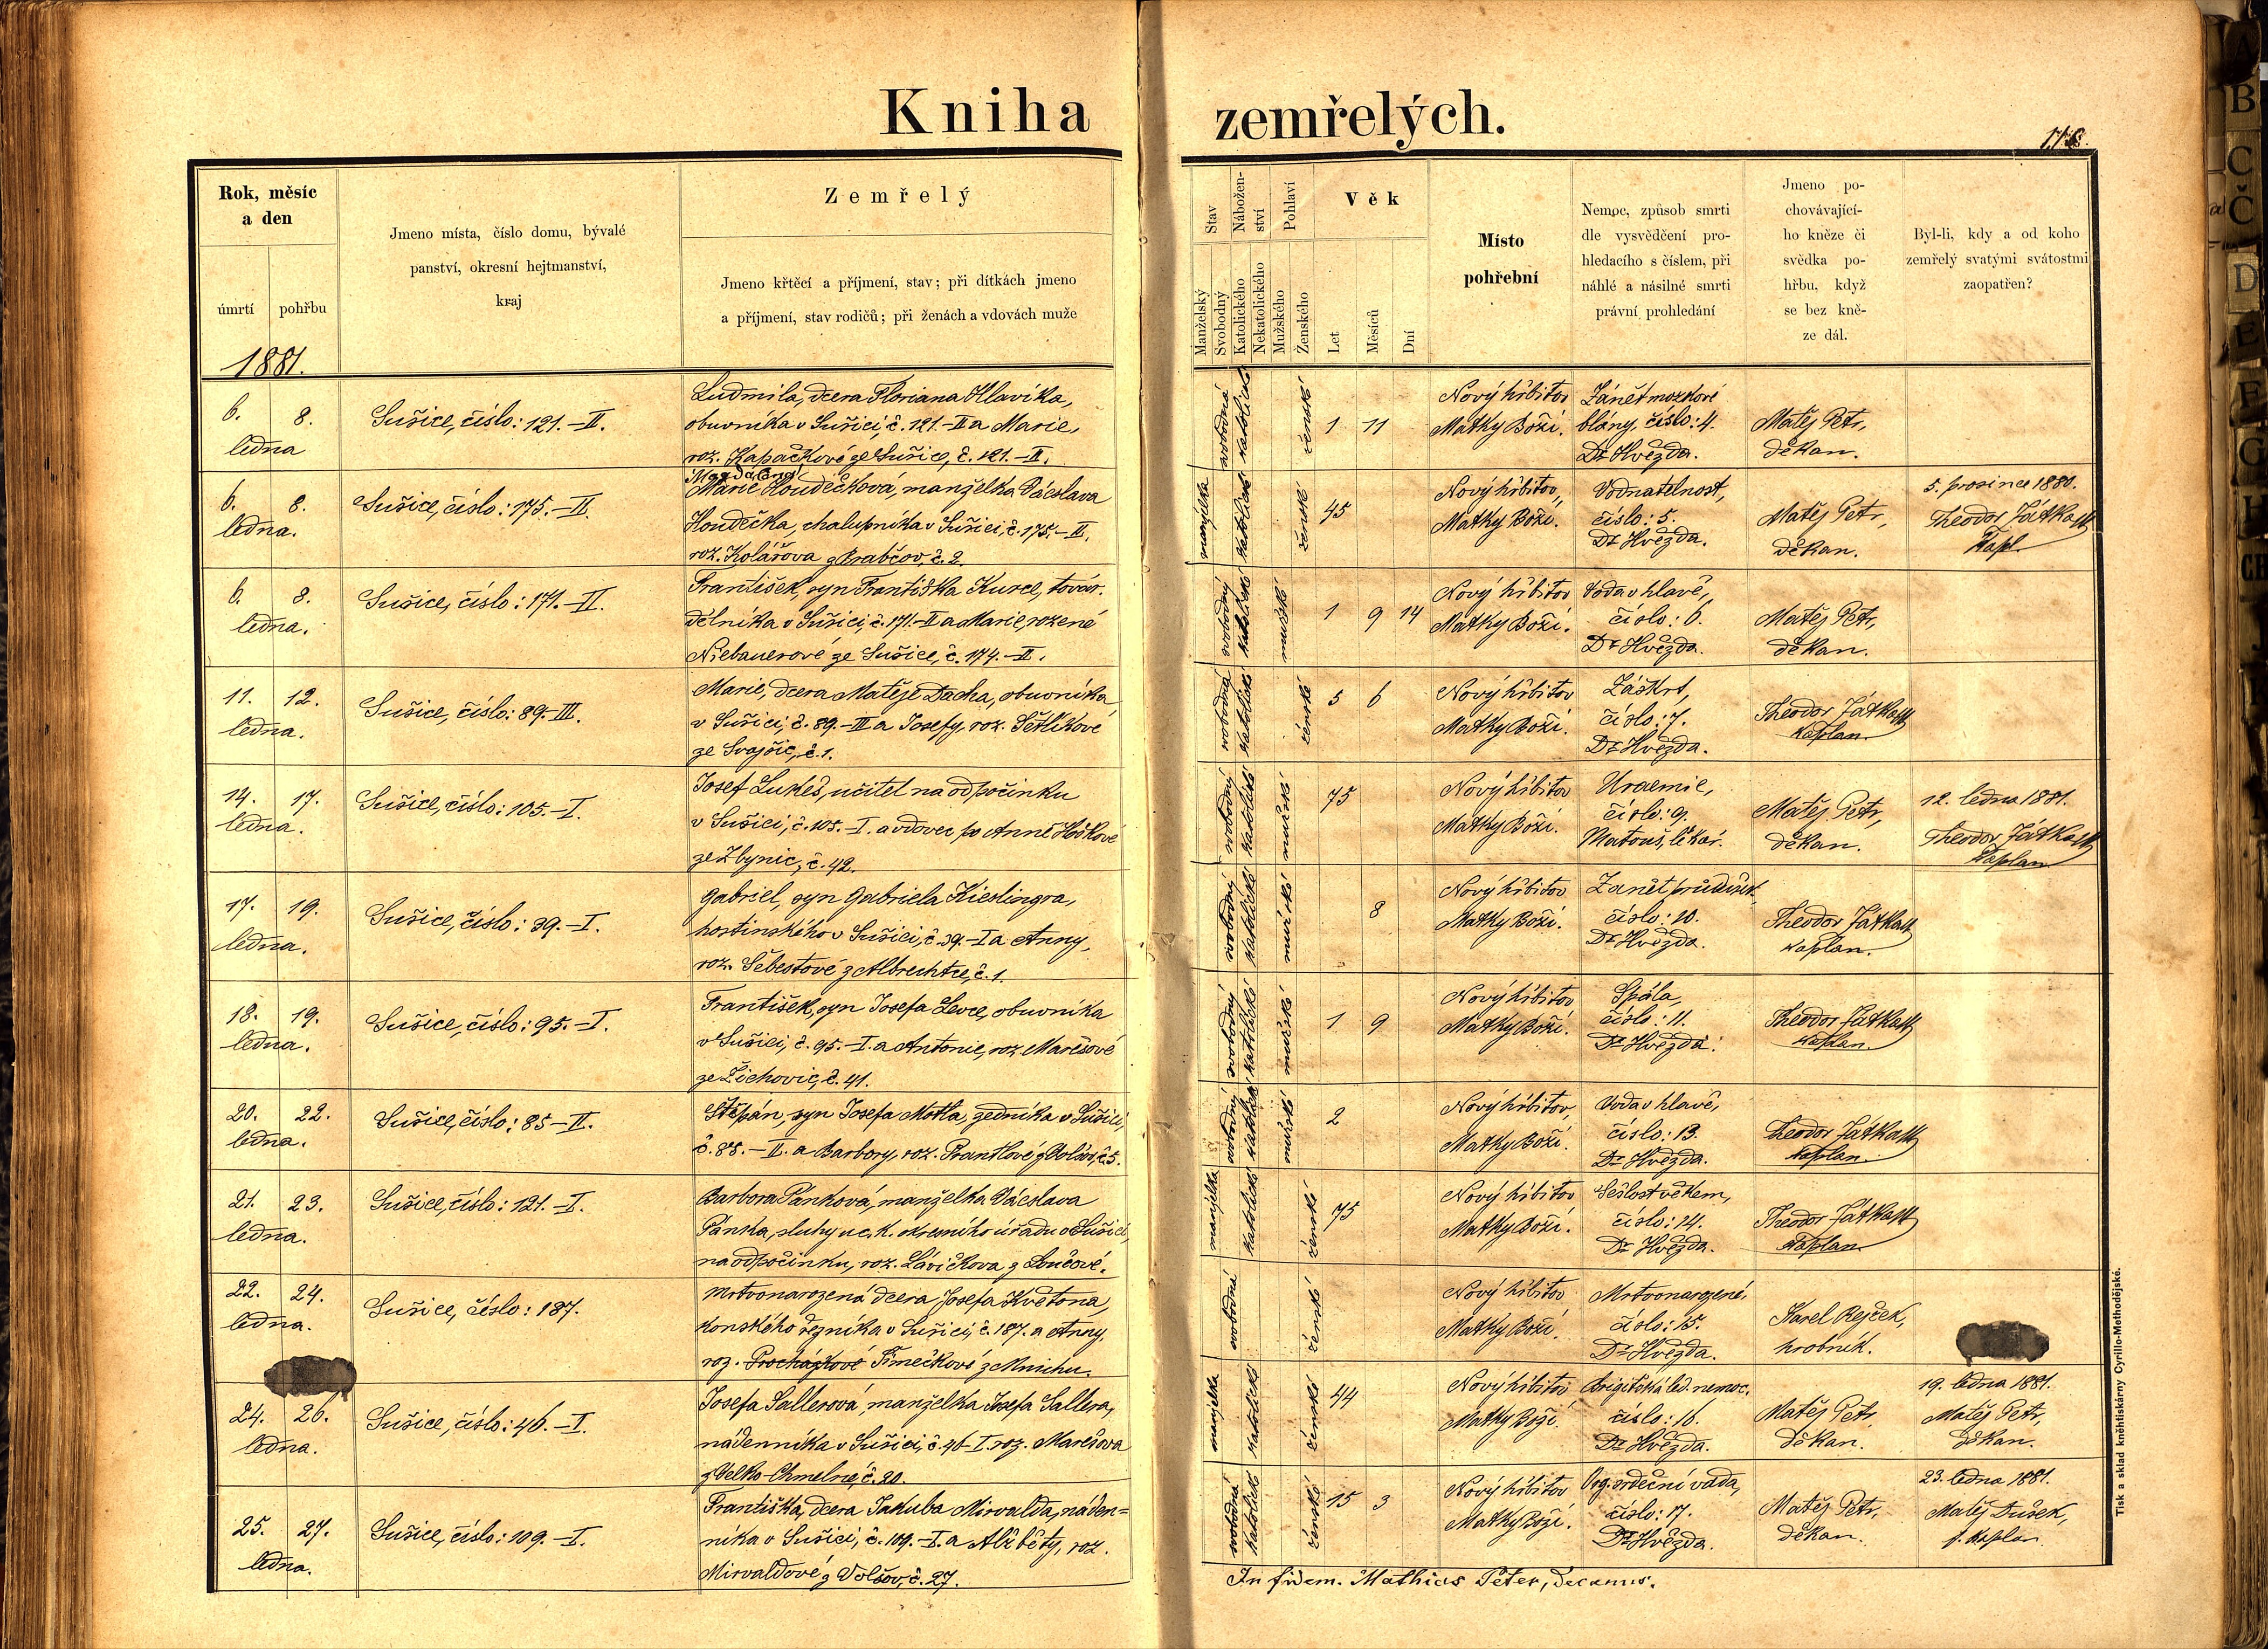 Kniha zemřelých.
118.
Rok, měsíc
a den
úmrtí
pohřbu
1881.
Jmeno místa, číslo domu, bývalé
panství, okresní hejtmanství,
kraj
Zemřelý
Jmeno křtěcí a příjmení, stav; při dítkách jmeno
a příjmení, stav rodičů; při ženách a vdovách muže
Stav
Manželský
Svobodný
Nábožen-
ství
Katolického
Nekatolického
Pohlaví
Mužského
Ženského
Věk
Let
Měsíců
Dní
Místo
pohřební
Nemoc, způsob smrti
dle vysvědčení pro-
hledacího s číslem, při
náhlé a násilné smrti
právní prohledání
Jmeno po-
chovávající-
ho kněze či
svědka po-
hřbu, když
se bez kně-
ze dál.
Byl-li, kdy a od koho
zemřelý svatými svátostmi
zaopatřen?
6. 8.
ledna
Sušice, číslo: 121.-II.
Ludmila, dcera Floriana Hlavíka,
obuvníka v Sušici, č. 121.-II a Marie,
roz. Kapačkové ze Sušice, č. 121.-II.
svobodná
katolické
ženské
1 11
Nový hřbitov
Matky Boží.
Zánět mozkové
blány, číslo: 4.
Dr Hvězda.
Matěj Petr,
děkan.
6. 8.
ledna.
Sušice, číslo: 175.-II.
Magdaléna
Marie Houdéčková, manželka Václava
Houdéčka, chalupníka v Sušici, č. 175.-II.
roz. Kolářova z Brabčov, č. 2.
manželka
katolické
ženské
45
Nový hřbitov,
Matky Boží.
Vodnatelnost,
číslo: 5.
Dr Hvězda.
Matěj Petr,
děkan.
5. prosince 1880.
Theodor Játka
Kapl.
6. 8.
ledna.
Sušice, číslo: 171.-II.
František, syn Františka Kurce, továr.
dělníka v Sušici, č. 171.-II a Marie, rozené
Niebauerové ze Sušice, č. 174.-II.
svobodný
katolické
mužské
1 9 14
Nový hřbitov
Matky Boží.
Voda v hlavě,
číslo: 6.
Dr Hvězda.
Matěj Petr,
děkan.
11. 12.
ledna.
Sušice, číslo: 89.-III.
Marie, dcera Matěje Dacha, obuvníka
v Sušici, č. 89.-III a Josefy, roz. Šetlíkové
ze Svojšic, č. 1.
svobodná
katolické
ženské
5 6
Nový hřbitov
Matky Boží.
Záškrt,
číslo: 7.
Dr Hvězda.
Theodor Játka
kaplan.
14. 17.
ledna.
Sušice, číslo: 105.-I.
Josef Lukeš, učitel na odpočinku
v Sušici, č. 105.-I. a vdovec po Anně Hoškové
ze Zbynic, č. 42.
svobodný
katolické
mužské
75
Nový hřbitov
Matky Boží.
Uraemie,
číslo: 9.
Matouš, lékař.
Matěj Petr,
děkan.
12. ledna 1881.
Theodor Játka
Kaplan
17. 19.
ledna.
Sušice, číslo: 39.-I.
Gabriel, syn Gabriela Kieslingra,
hostinského v Sušici, č. 39.-I a Anny,
roz. Šebestové z Albrechtce, č. 1.
svobodný
katolické
mužské
8
Nový hřbitov
Matky Boží.
Zanět průdušek,
číslo: 10.
Dr Hvězda.
Theodor Játka
kaplan.
18. 19.
ledna.
Sušice, číslo: 95.-I.
František, syn Josefa Levce, obuvníka
v Sušici, č. 95.-I. a Antonie, roz Marešové
ze Žichovic, č. 41.
svobodný
katolické
mužské
1 9
Nový hřbitov
Matky Boží.
Spála,
číslo: 11.
Dr Hvězda.
Theodor Játka
kaplan.
20. 22.
ledna.
Sušice, číslo: 85-II.
Štěpán, syn Josefa Motla, zedníka v Sušici,
č. 85.-II. a Barbory, roz. Prantlové z Volšov, č. 5.
svobodný
katolické
mužské
2
Nový hřbitov,
Matky Boží.
Voda v hlavě,
číslo: 13.
Dr Hvězda.
Theodor Játka
kaplan.
21. 23.
ledna.
Sušice, číslo: 121.-I.
Barbora Pánková, manželka Václava
Pánka, sluhy u c. k. okresního úřadu v Sušici,
na odpočinku, roz. Lávičkova z Loučové.
manželka
katolické
ženské
75
Nový hřbitov
Matky Boží.
Sešlost věkem,
číslo: 14.
Dr Hvězda.
Theodor Játka
Kaplan.
22. 24.
ledna.
Sušice, číslo: 187.
Mrtvonarozená dcera Josefa Květona,
konského řezníka v Sušici, č. 187. a Anny,
roz. Procházkové Šimečkové z Mnichu.
svobodná
ženské
Nový hřbitov
Matky Boží.
Mrtvonarozené,
číslo: 15.
Dr Hvězda.
Karel Rejček,
hrobník.
24. 26.
ledna.
Sušice, číslo: 46.-I.
Josefa Sallerová, manželka Josefa Sallera,
nádenníka v Sušici, č. 46-I. roz. Marešova
z Velko-Chmelné, č. 20.
manželka
katolické
ženské
44
Nový hřbitov
Matky Boží.
Brigitská led. nemoc,
číslo: 16.
Dr Hvězda.
Matěj Petr,
děkan.
19. ledna 1881.
Matěj Petr,
děkan.
25. 27.
ledna.
Sušice, číslo: 109.-I.
Františka, dcera Jakuba Mirvalda, náden=
níka v Sušici, č. 109.-I. a Alžběty, roz.
Mirvaldové z Volšov, č. 27.
svobodná
katolické
ženské
15 3
Nový hřbitov
Matky Boží.
Org. srdeční vada,
číslo: 17.
Dr Hvězda.
Matěj Petr,
děkan.
23. ledna 1881.
Matěj Dušek,
f. kaplan
In fidem. Mathias Peter, decanus.
Tisk a sklad kněhtiskárny Cyrillo-Methodějské.
A
B
C
Č
D
E
F
G
H
CH